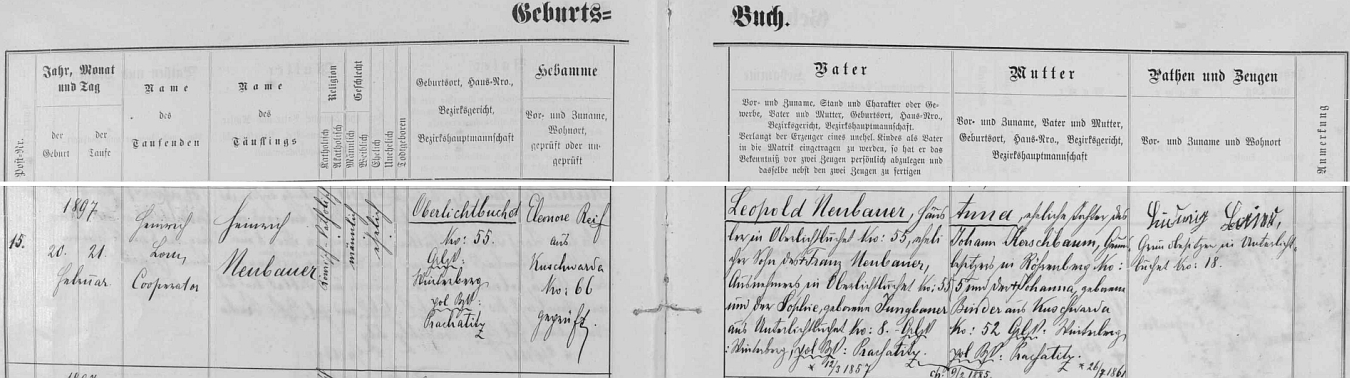 Geburts=
Buch.
Post-Nr.
Jahr, Monat
und Tag
der
Geburt
der
Taufe
Name
des
Taufenden
Name
des
Täuflings
Religion
Katholisch
Akatholisch
Geschlecht
Männlich
Weiblich
Ehelich
Unehelich
Todtgeboren
Geburtsort, Haus-Nro.,
Bezirksgericht,
Bezirkshauptmannschaft
Hebamme
Vor- und Zuname,
Wohnort,
geprüft oder un-
geprüft
Vater
Vor- und Zuname, Stand und Charakter oder Ge-
werbe, Vater und Mutter, Geburtsort, Haus-Nro.,
Bezirksgericht, Bezirkshauptmannschaft.
Verlangt der Erzeuger eines unehel. Kindes als Vater
in die Matrik eingetragen zu werden, so hat er das
Bekenntniß vor zwei Zeugen persönlich abzulegen und
dasselbe nebst den zwei Zeugen zu fertigen
Mutter
Vor- und Zuname, Vater und Mutter,
Geburtsort, Haus-Nro., Bezirksgericht,
Bezirkshauptmannschaft
Pathen und Zeugen
Vor- und Zuname und Wohnort
Anmerkung
15.
1897
20. 21.
Februar
Heinrich
Cooperator
Heinrich
Neubauer
männlich
ehelich
Oberlichtbuchet
No: 55.
Winterberg
pol. Bzk:
Prachatitz
Eleonore Reif
aus
Kuschwarda
No: 66
geprüft.
Leopold Neubauer, Häus
ler in Oberlichtbuchet No: 55, eheli
cher Sohn des Franz Neubauer,
Ausnehmers in Oberlichtbuchet No: 55
und der Sophie, geborene Jungbauer
aus Unterlichtbuchet No: 8.
Winterberg, pol. Bzk: Prachatitz.
* 12/3 1857
Anna, eheliche Tochter des
Johann Kerschbaum,
in Röhrenberg No:
5 und der Johanna, geborene
Binder aus Kuschwarda
No: 52 Winterberg,
pol. Bzk: Prachatitz.
* 26/7 1861
Ludwig
Grundbesitzer in Unterlicht-
buchet No: 18.